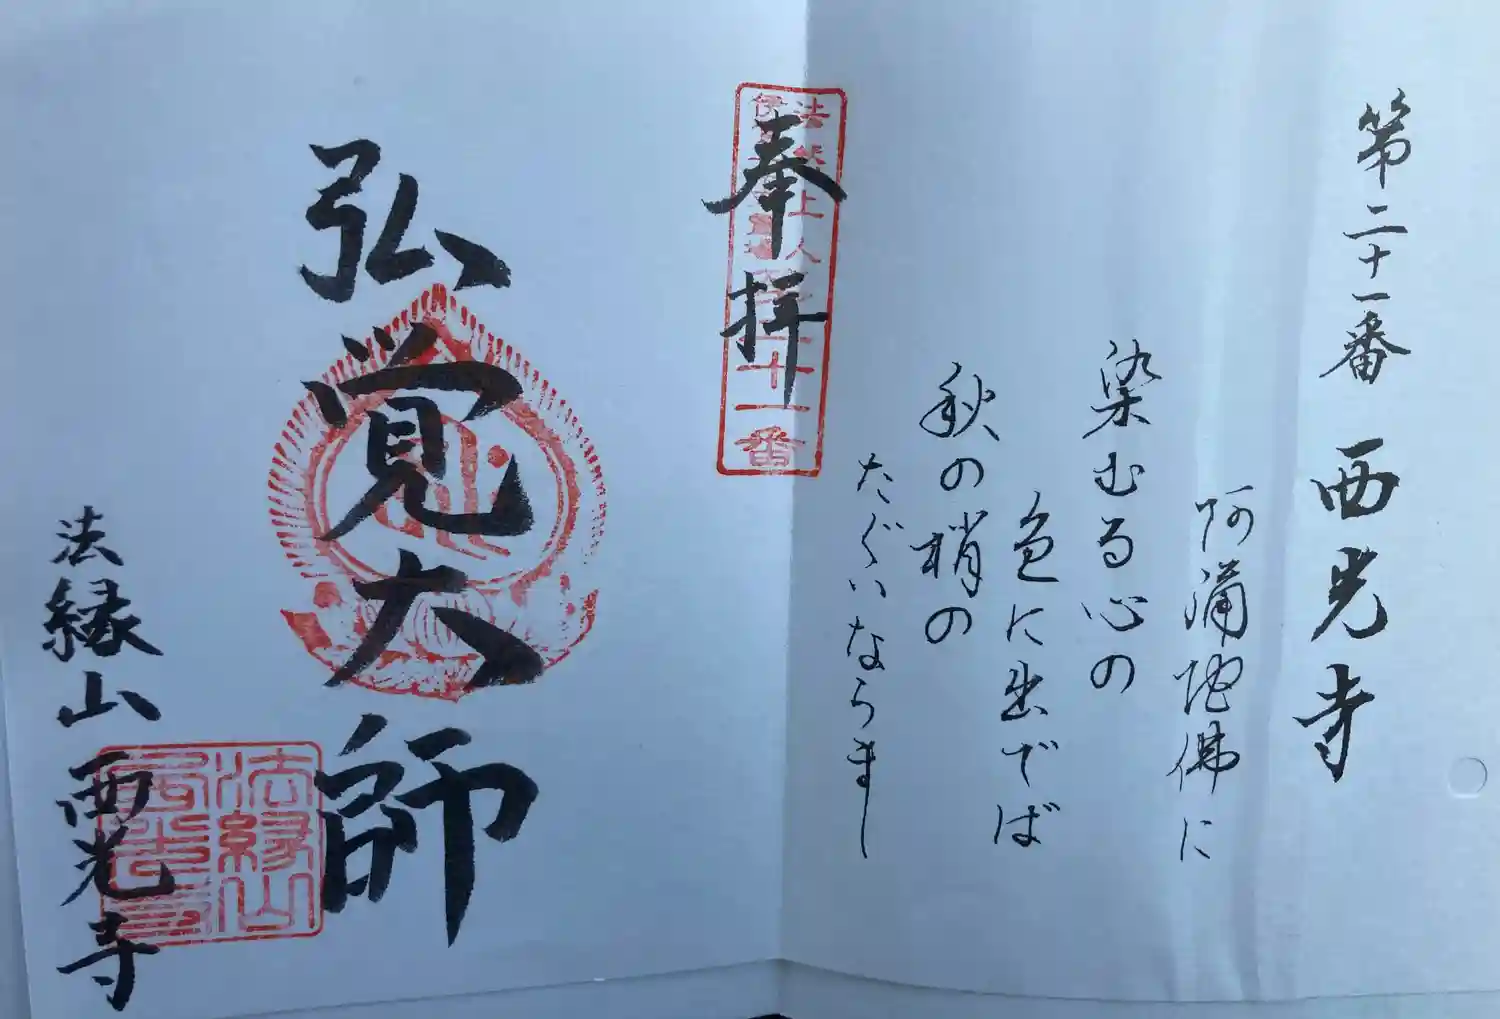 第二十一番 西光寺
阿弥陀佛に
染むる心の
色に出でば
秋の梢の
たぐいならまし
奉拝
法然上人
二十一番
弘覚大師
法縁山 西光寺
法縁山
西光寺